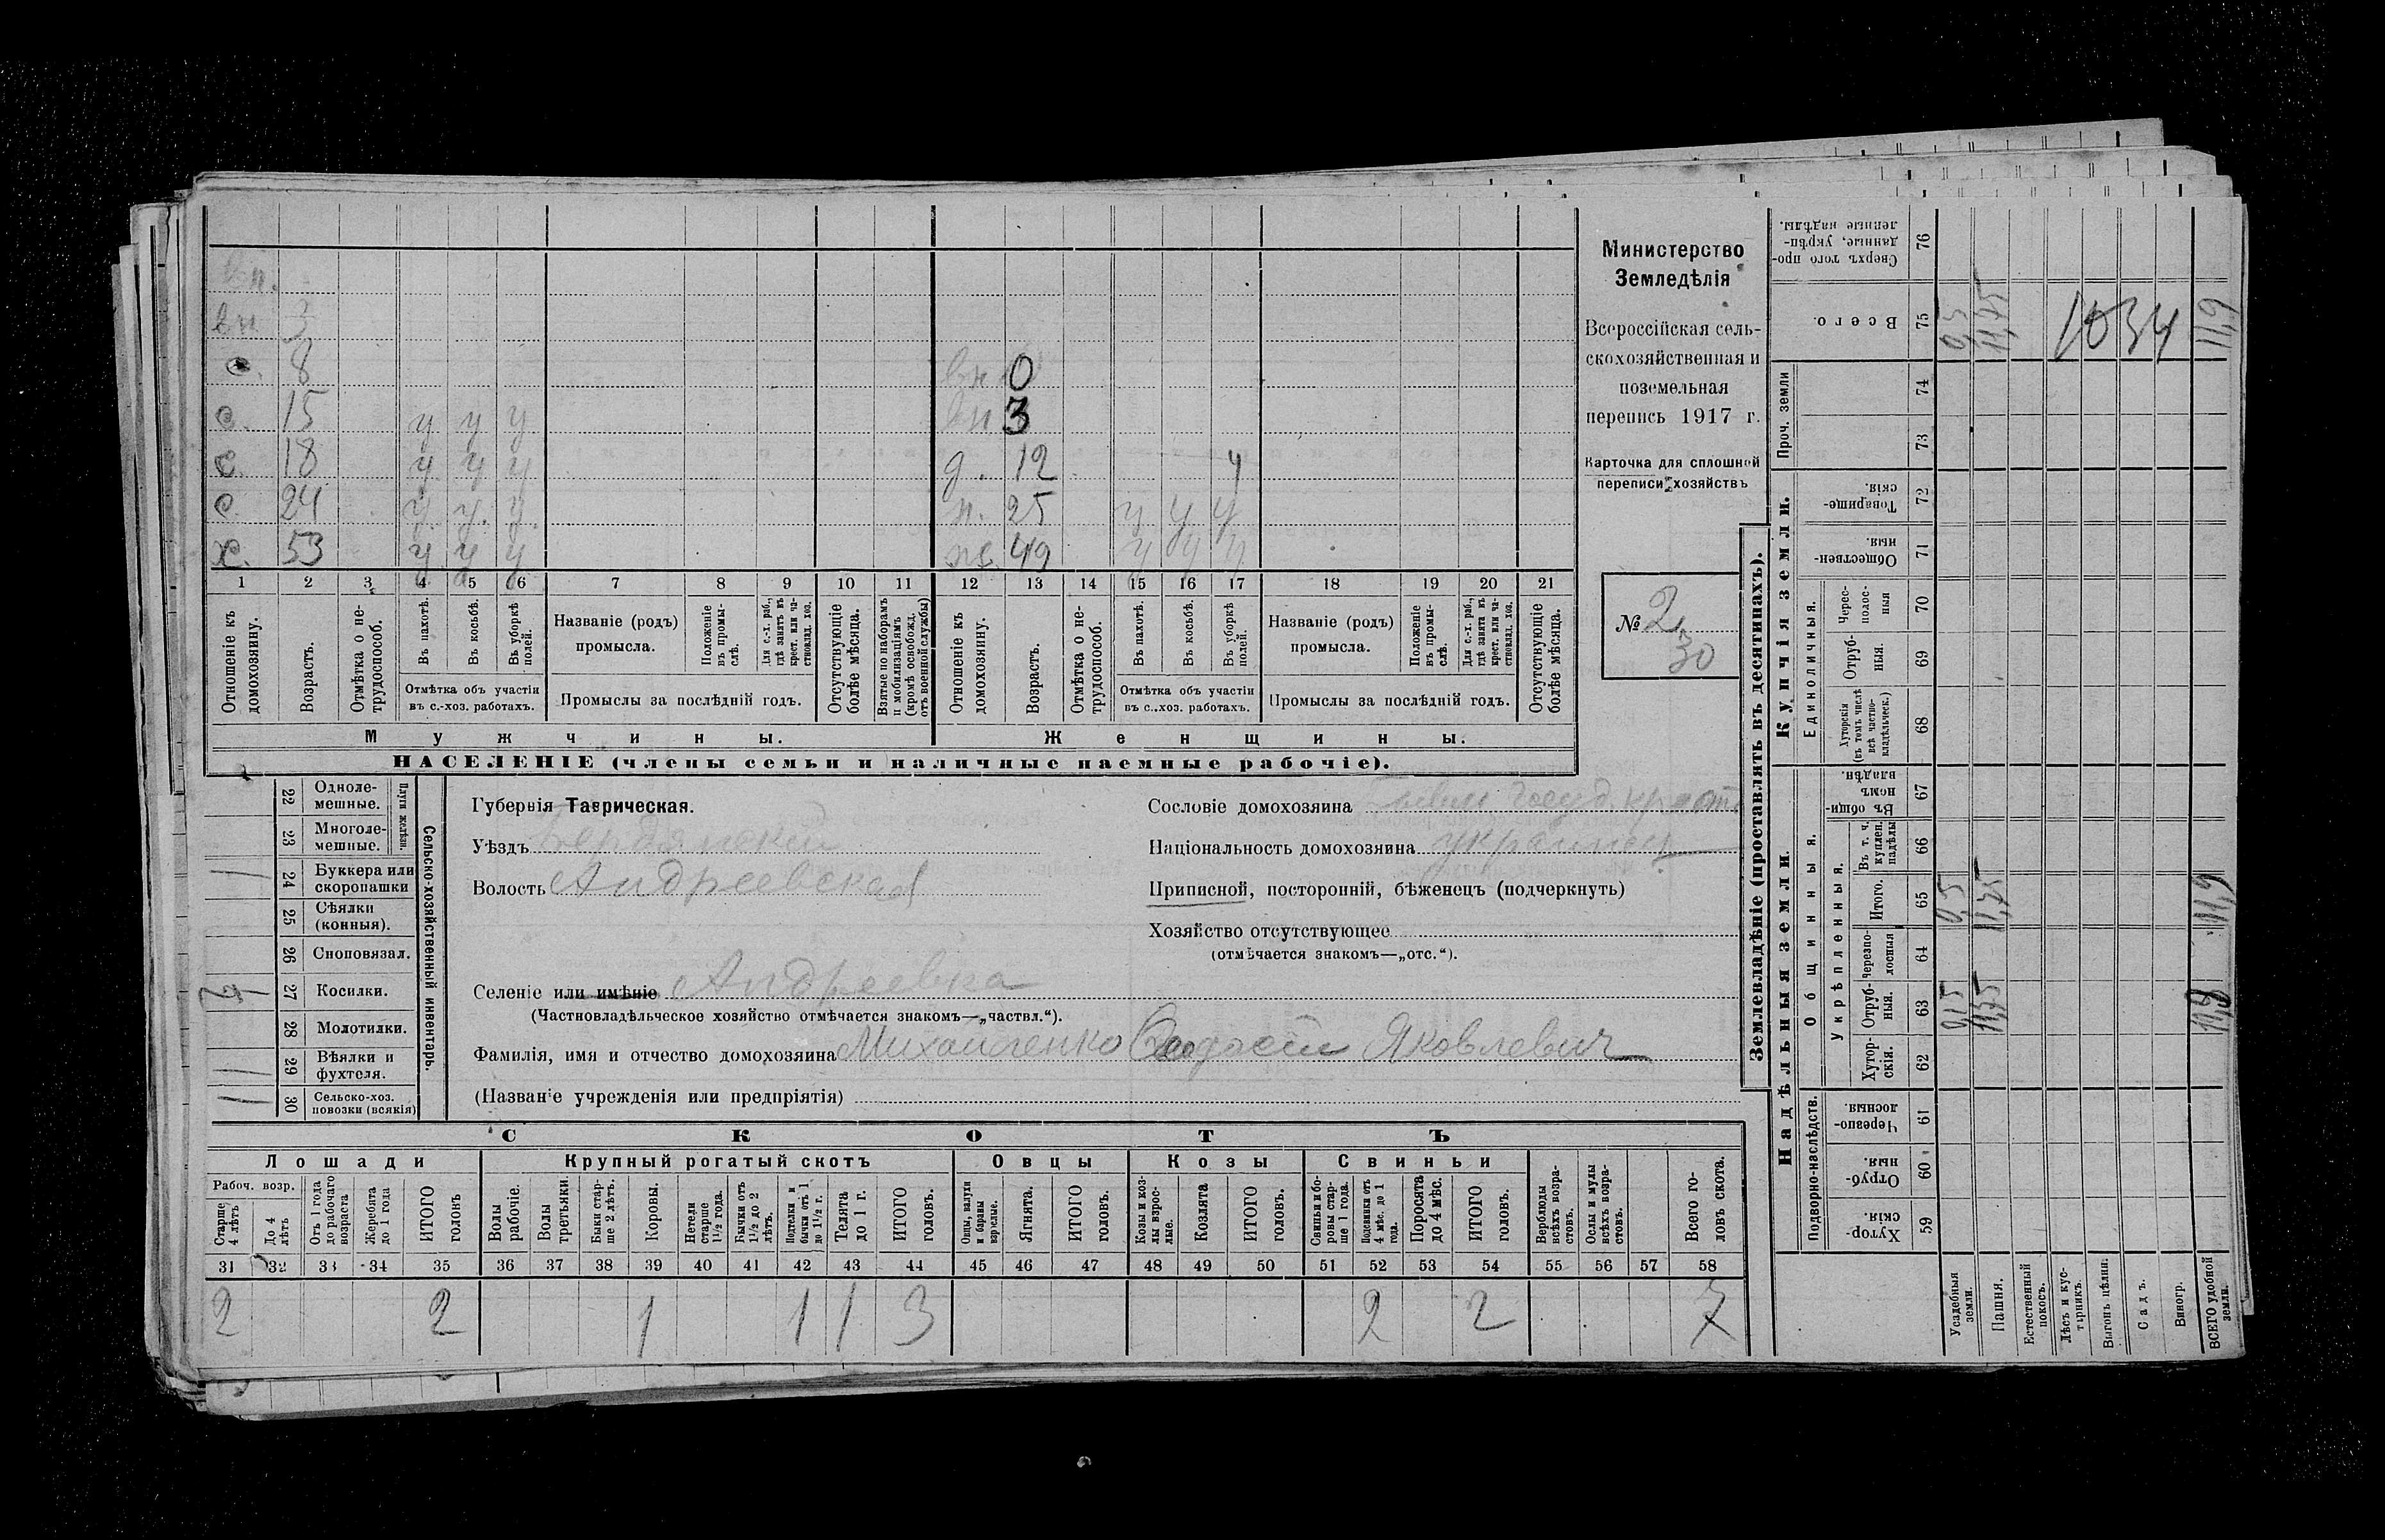 вн.
вн 3
с. 8 вн 0
с. 15 у у у вн 3
с. 18 у у у д. 12 у
с. 24 у. у. у. н. 25 у у у
х. 53 у у у ж. 49 у у у
1 2 3 4 5 6 7 8 9 10 11 12 13 14 15 16 17 18 19 20 21
Отношеніе къ домохозяину.
Возрастъ.
Отмѣтка о нетрудоспособ.
Въ пахотѣ.
Въ косьбѣ.
Въ уборкѣ полей.
Отмѣтка объ участіи
въ с.-хоз. работахъ.
Названіе (родъ)
промысла.
Положеніе въ промыслѣ.
Для с.-х. раб., гдѣ занятъ въ крест. или частновлад. хоз.
Промыслы за послѣдній годъ.
Отсутствующіе болѣе мѣсяца.
Взятые по наборамъ и мобилизаціямъ (кромѣ освобожд. отъ военной службы)
Отношеніе къ домохозяину.
Возрастъ.
Отмѣтка о нетрудоспособ.
Въ пахотѣ.
Въ косьбѣ.
Въ уборкѣ полей.
Отмѣтка объ участіи
въ с.-хоз. работахъ.
Названіе (родъ)
промысла.
Положеніе въ промыслѣ.
Для с.-х. раб., гдѣ занята въ крест. или частновлад. хоз.
Промыслы за послѣдній годъ.
Отсутствующіе болѣе мѣсяца.
Мужчины. Женщины.
НАСЕЛЕНІЕ (члены семьи и наличные наемные рабочіе).
Министерство
Земледѣлія
Всероссійская сель-
скохозяйственная и
поземельная
перепись 1917 г.
Карточка для сплошной
переписи хозяйствъ
№ 2
30
22 Одноле-
мешные.
23 Многоле-
мешные.
Плуги желѣзн.
1 24 Буккера или
скоропашки
25 Сѣялки
(конныя).
26 Сноповязал.
27 Косилки.
28 Молотилки.
1 29 Вѣялки и
фухтеля.
1 30 Сельско-хоз.
повозки (всякія)
Сельско-хозяйственный инвентарь.
Губернія Таврическая.
Уѣздъ Бердянскій
Волость Андреевская
Селеніе или имѣніе Андреевка
(Частновладѣльческое хозяйство отмѣчается знакомъ—„частвл.“).
Фамилія, имя и отчество домохозяина Михайленко Яковлевич
(Названіе учрежденія или предпріятія)
Сословіе домохозяина
Національность домохозяина украинец
Приписной, посторонній, бѣженецъ (подчеркнуть)
Хозяйство отсутствующее
(отмѣчается знакомъ—„отс.“).
СКОТЪ
Лошади Крупный рогатый скотъ Овцы Козы Свиньи
Рабоч. возр.
Старше 4 лѣтъ
До 4 лѣтъ
Отъ 1 года до рабочаго возраста
Жеребята до 1 года
ИТОГО головъ
Волы рабочіе.
Волы третьяки.
Быки старше 2 лѣтъ.
Коровы.
Нетели старше 1½ года.
Бычки отъ 1½ до 2 лѣтъ.
Подтелки и бычки отъ 1 до 1½ г.
Телята до 1 г.
ИТОГО головъ.
Овцы, валухи и бараны взрослые.
Ягнята.
ИТОГО головъ.
Козы и козлы взрослые.
Козлята
ИТОГО головъ.
Свиньи и боровы старше 1 года.
Подсвинки отъ 4 мѣс. до 1 года.
Поросята до 4 мѣс.
ИТОГО головъ.
Верблюды всѣхъ возрастовъ.
Ослы и мулы всѣхъ возрастовъ.
Всего головъ скота.
31 32 33 34 35 36 37 38 39 40 41 42 43 44 45 46 47 48 49 50 51 52 53 54 55 56 57 58
2 2 1 1 1 3 2 2 7
Землевладѣніе (проставлять въ десятинахъ).
Купчія земли.
Надѣльныя земли.
Сверхъ того проданные, укрѣпленные надѣлы. 76
Всего. 75 0,5 11,45 1034 11,9
Проч. земли 74
73
Товарищескія. 72
Общественныя. 71
Единоличныя.
Чересполосныя 70
Отрубныя. 69
Хуторскія (въ томъ числѣ всѣ частновладѣльческ.) 68
Общинныя.
Въ общинномъ владѣн. 67
Укрѣпленныя.
Въ т. ч. куплен. надѣлы 66
Итого. 65 0,5 11,45 11,9
Черезполосныя 64
Отрубныя. 63
Хуторскія. 62
Подворно-наслѣдств.
Черезполосныя. 61
Отрубныя. 60
Хуторскія. 59
Усадебныя земли.
Пашня.
Естественный покосъ.
Лѣсъ и кустарникъ.
Выгонъ цѣлин.
Садъ.
Виногр.
ВСЕГО удобной земли.